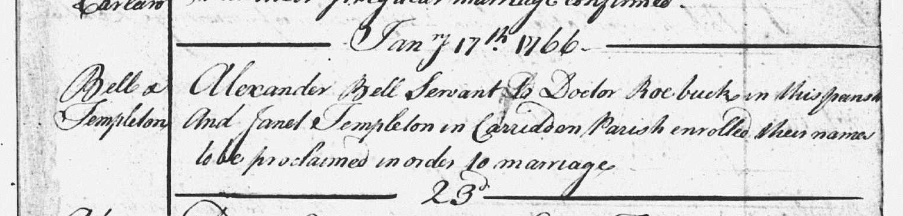 regular marriage confirmed.
Janry 17th 1766.
Bell & Alexander Bell Servant to Doctor Roebuck in this parish
Templeton And Janet Templeton in Carridden Parish enrolled their names
to be proclaimed in order to marriage
23d